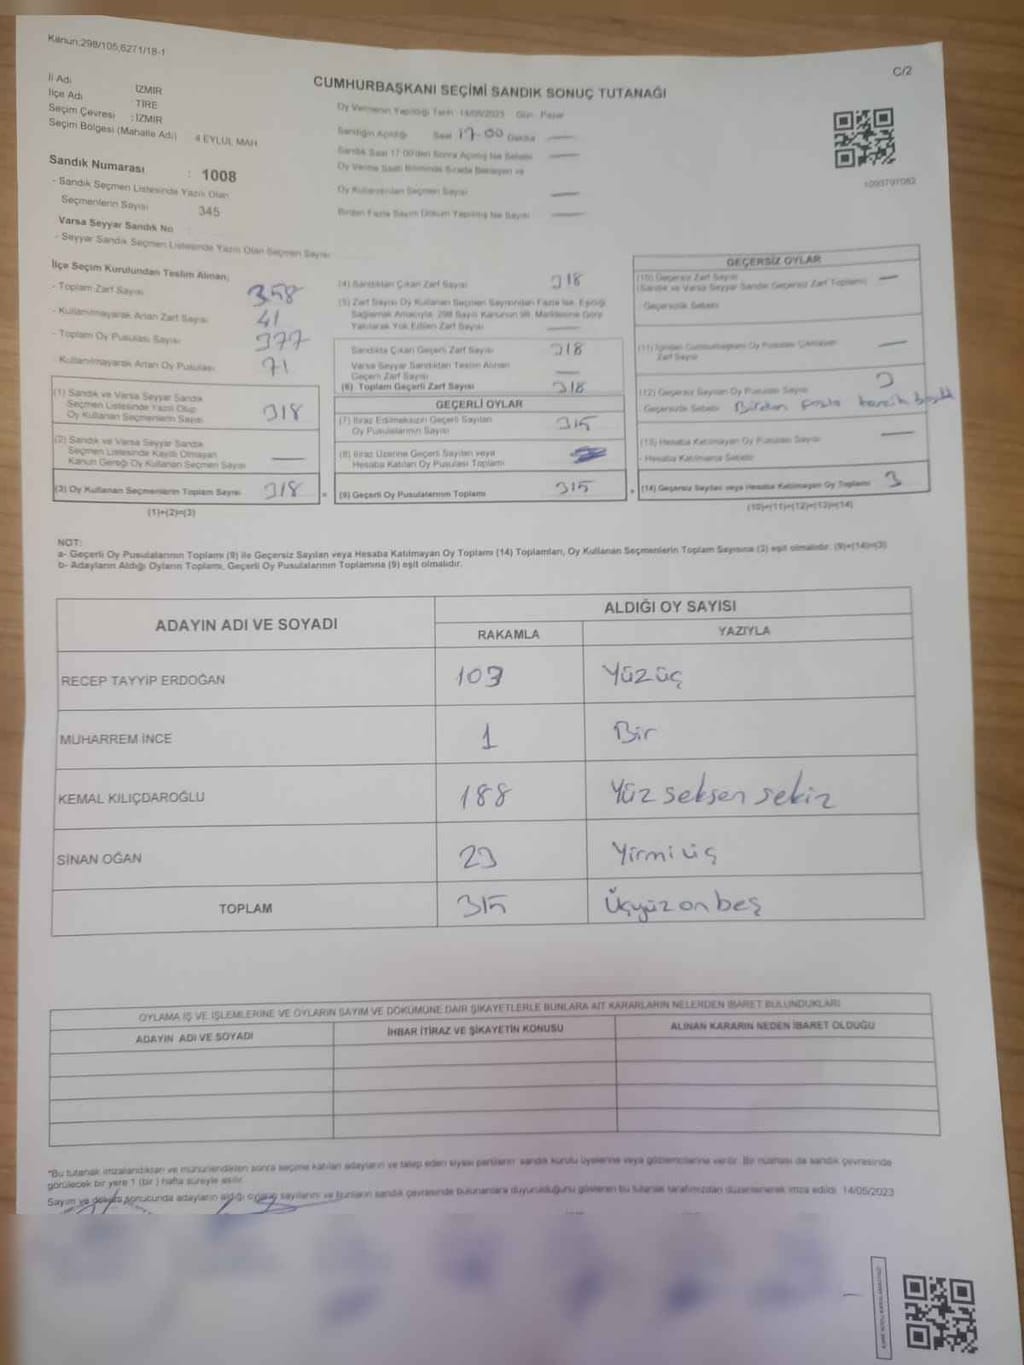 Kanun:298/105;6271/18-1
C/2
CUMHURBAŞKANI SEÇİMİ SANDIK SONUÇ TUTANAĞI
İl Adı : İZMİR
İlçe Adı : TİRE
Seçim Çevresi : İZMİR
Seçim Bölgesi (Mahalle Adı) 4 EYLÜL MAH
Oy Vermenin Yapıldığı Tarih 14/05/2023 Gün Pazar
Sandığın Açıldığı Saat 17:00 Dakika
Sandık Saat 17:00'den Sonra Açılmış İse Sebebi
Oy Verme Saati Bitiminde Sırada Bekleyen ve
Oy Kullandırılan Seçmen Sayısı
Birden Fazla Sayım Döküm Yapılmış İse Sayısı
1093797082
Sandık Numarası : 1008
- Sandık Seçmen Listesinde Yazılı Olan
Seçmenlerin Sayısı 345
Varsa Seyyar Sandık No
- Seyyar Sandık Seçmen Listesinde Yazılı Olan Seçmen Sayısı
İlçe Seçim Kurulundan Teslim Alınan;
- Toplam Zarf Sayısı 358
- Kullanılmayarak Artan Zarf Sayısı 41
- Toplam Oy Pusulası Sayısı 377
- Kullanılmayarak Artan Oy Pusulası 71
(1) Sandık ve Varsa Seyyar Sandık
Seçmen Listesinde Yazılı Olup
Oy Kullanan Seçmenlerin Sayısı 318
(2) Sandık ve Varsa Seyyar Sandık
Seçmen Listesinde Kayıtlı Olmayan
Kanun Gereği Oy Kullanan Seçmen Sayısı
(3) Oy Kullanan Seçmenlerin Toplam Sayısı 318
(1)+(2)=(3)
(4) Sandıktan Çıkan Zarf Sayısı 318
(5) Zarf Sayısı Oy Kullanan Seçmen Sayısından Fazla İse, Eşitliği
Sağlamak Amacıyla, 298 Sayılı Kanunun 98. Maddesine Göre
Yakılarak Yok Edilen Zarf Sayısı
Sandıkta Çıkan Geçerli Zarf Sayısı 318
Varsa Seyyar Sandıktan Teslim Alınan
Geçerli Zarf Sayısı
(6) Toplam Geçerli Zarf Sayısı 318
GEÇERLİ OYLAR
(7) İtiraz Edilmeksizin Geçerli Sayılan
Oy Pusulalarının Sayısı 315
(8) İtiraz Üzerine Geçerli Sayılan veya
Hesaba Katılan Oy Pusulası Toplamı
(9) Geçerli Oy Pusulalarının Toplamı 315
GEÇERSİZ OYLAR
(10) Geçersiz Zarf Sayısı
(Sandık ve Varsa Seyyar Sandık Geçersiz Zarf Toplamı)
Geçersizlik Sebebi
(11) İçinden Cumhurbaşkanı Oy Pusulası Çıkmayan
Zarf Sayısı
(12) Geçersiz Sayılan Oy Pusulası Sayısı 3
Geçersizlik Sebebi Birden fazla
(13) Hesaba Katılmayan Oy Pusulası Sayısı
- Hesaba Katılmama Sebebi
(14) Geçersiz Sayılan veya Hesaba Katılmayan Oy Toplamı 3
(10)+(11)+(12)+(13)=(14)
NOT:
a- Geçerli Oy Pusulalarının Toplamı (9) ile Geçersiz Sayılan veya Hesaba Katılmayan Oy Toplamı (14) Toplamları, Oy Kullanan Seçmenlerin Toplam Sayısına (3) eşit olmalıdır. (9)+(14)=(3)
b- Adayların Aldığı Oyların Toplamı, Geçerli Oy Pusulalarının Toplamına (9) eşit olmalıdır.
ADAYIN ADI VE SOYADI
ALDIĞI OY SAYISI
RAKAMLA YAZIYLA
RECEP TAYYİP ERDOĞAN 103 Yüzüç
MUHARREM İNCE 1 Bir
KEMAL KILIÇDAROĞLU 188 Yüz seksen sekiz
SİNAN OĞAN 23 Yirmi üç
TOPLAM 315 Üçyüz on beş
OYLAMA İŞ VE İŞLEMLERİNE VE OYLARIN SAYIM VE DÖKÜMÜNE DAİR ŞİKAYETLERLE BUNLARA AİT KARARLARIN NELERDEN İBARET BULUNDUKLARI
ADAYIN ADI VE SOYADI İHBAR İTİRAZ VE ŞİKAYETİN KONUSU ALINAN KARARIN NEDEN İBARET OLDUĞU
*Bu tutanak imzalandıktan ve mühürlendikten sonra seçime katılan adayların ve talep eden siyasi partilerin sandık kurulu üyelerine veya gözlemcilerine verilir. Bir nüshası da sandık çevresinde
görülecek bir yere 1 (bir) hafta süreyle asılır.
Sayım ve döküm sonucunda adayların aldığı oyların sayılarını ve bunların sandık çevresinde bulunanlara duyurulduğunu gösteren bu tutanak tarafımızdan düzenlenerek imza edildi. 14/05/2023